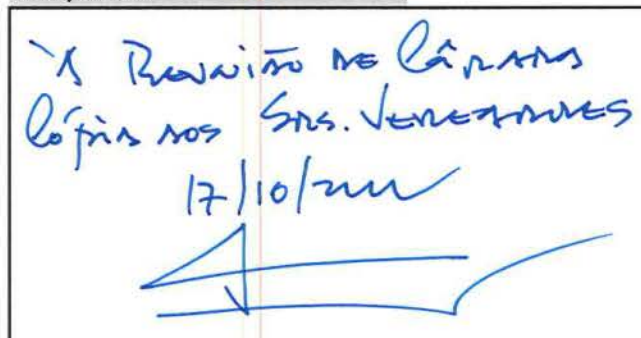 À Reunião de Câmara
Cópia aos Srs. Vereadores
17/10/